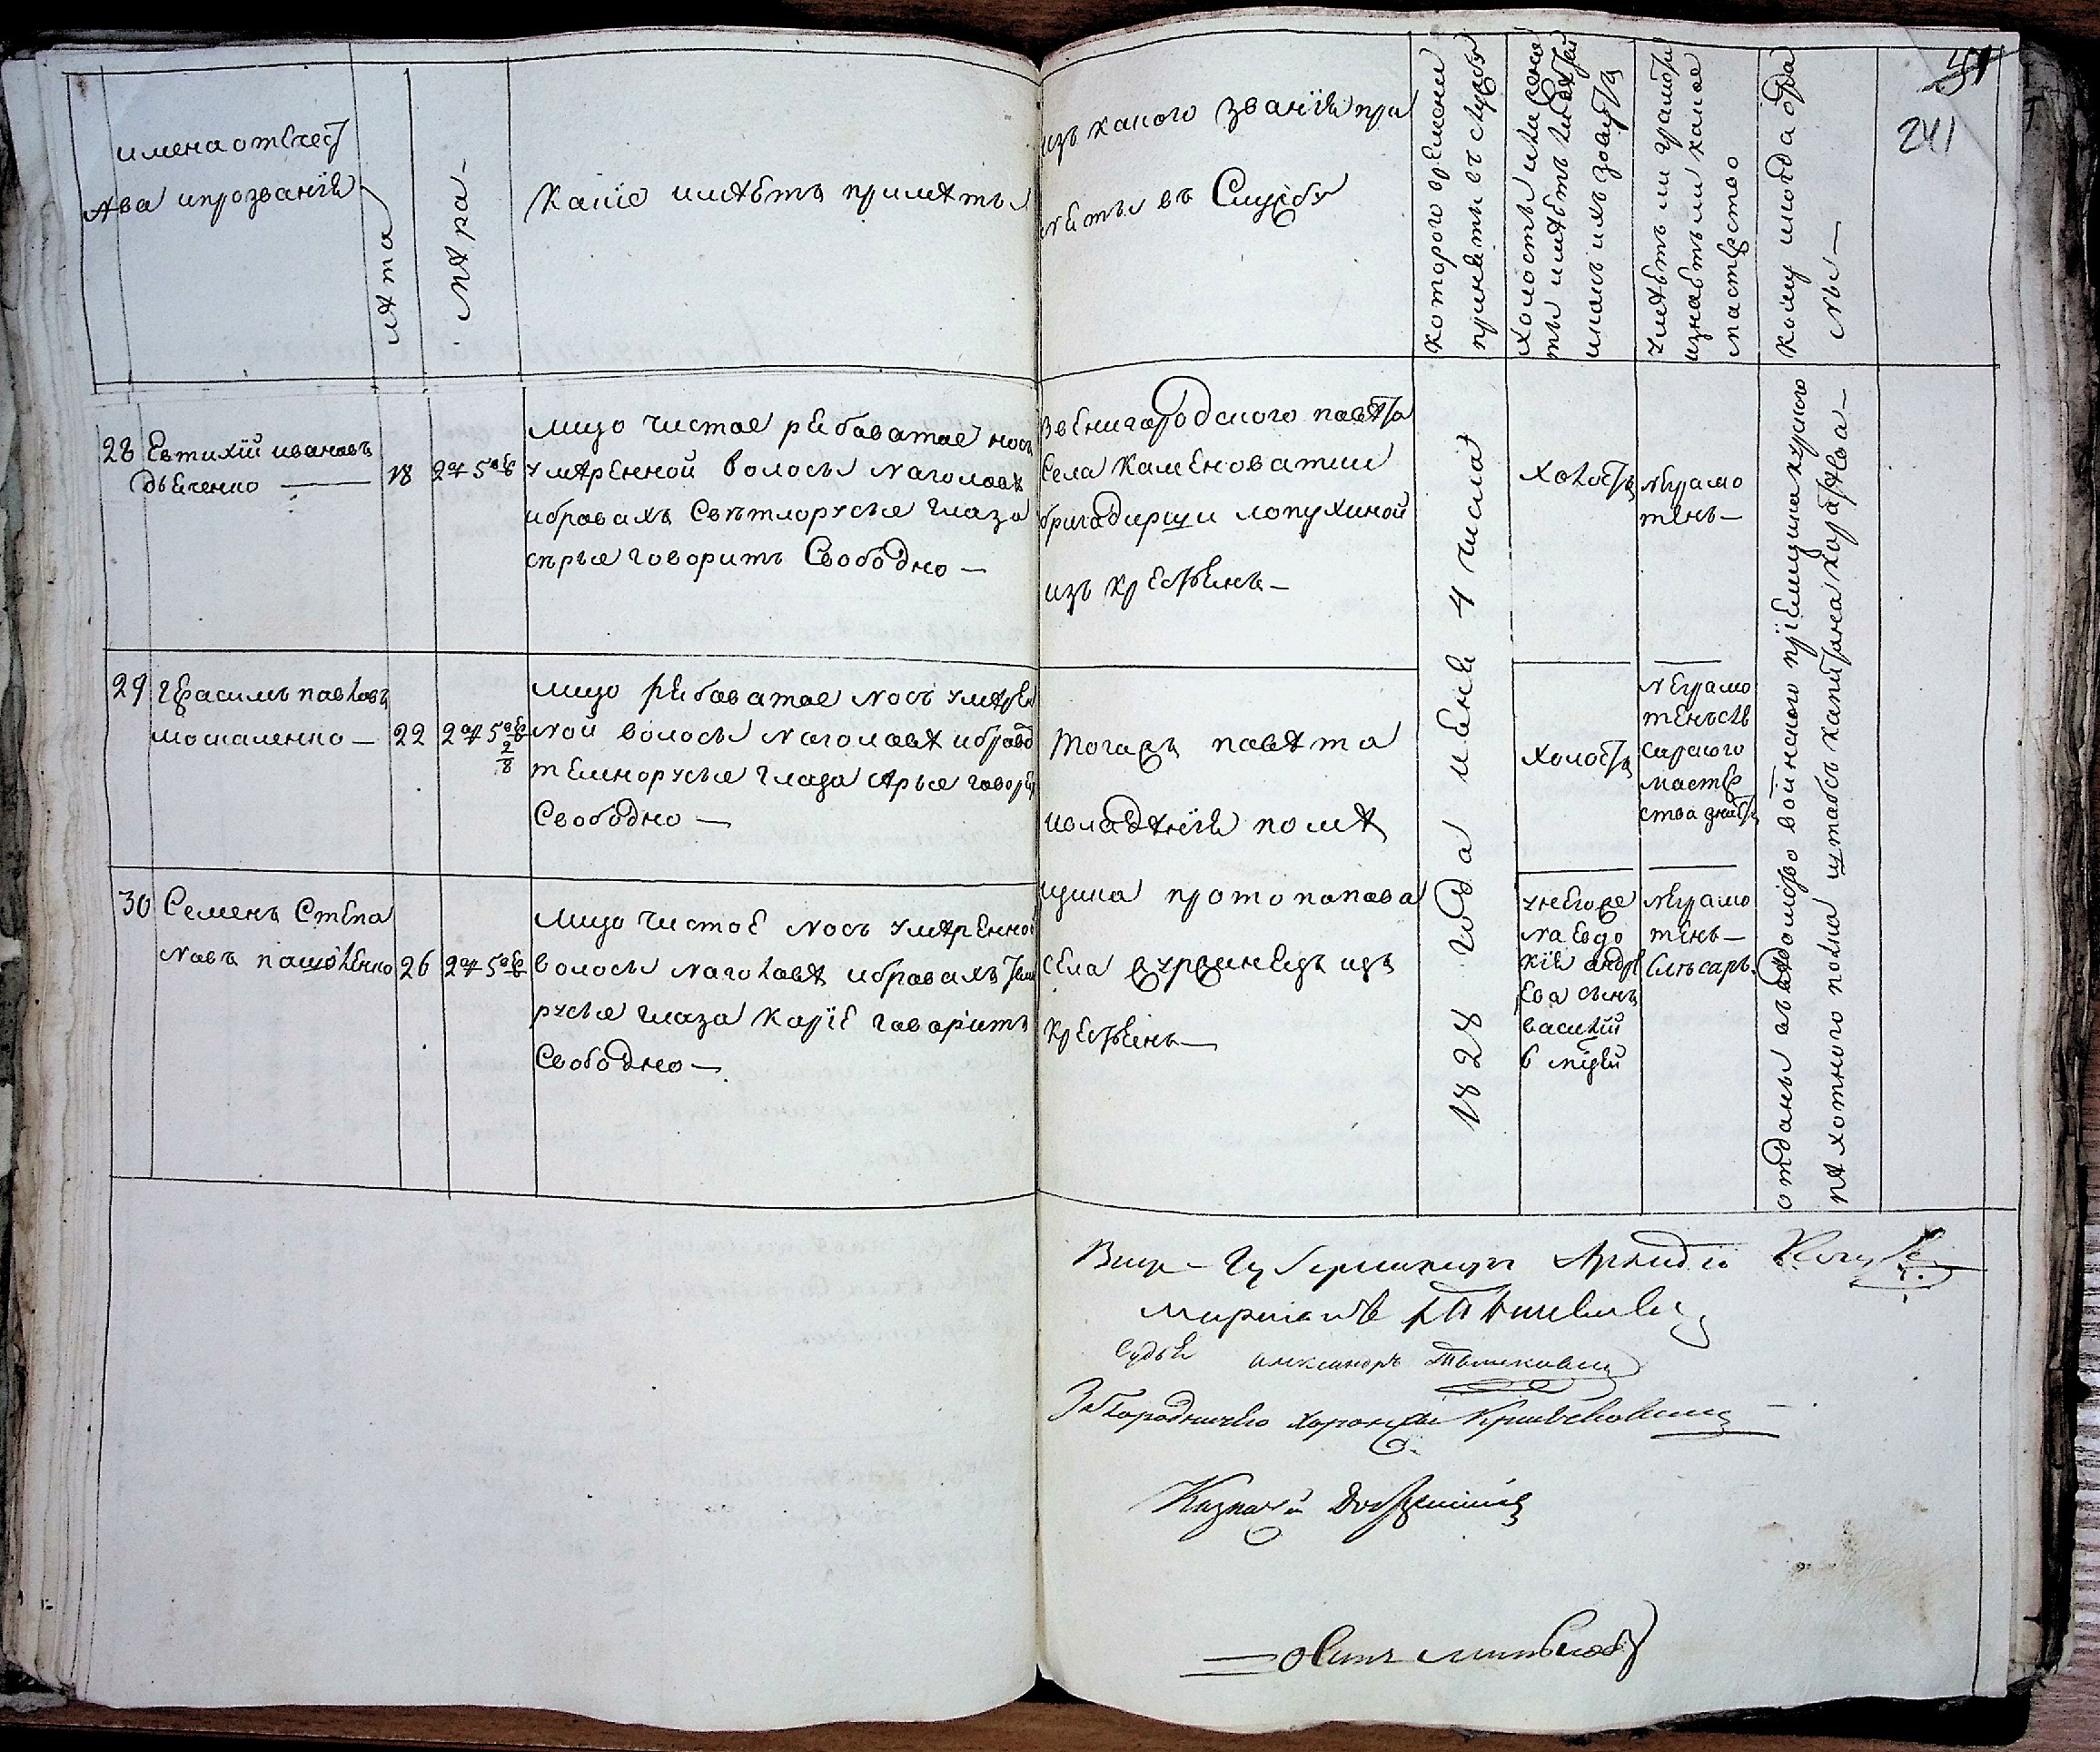 51
241
имена отечест
ѣва и прозванія
лѣта
мѣра
какіе имѣютъ примѣты
изъ какого званія при
няты въ Службу
которого времени
приняты въ службу
Холосты или жена
ты имѣютъ ли дѣтей
и какъ ихъ зовутъ
умѣютъ ли грамотѣ
и знаютъ ли какое
мастерство
кому и когда отда
ны —
28 Евтихій ивановъ
дьяченко —
18
2 ар 5 ве
лицо чистое рябоватое носъ
умѣренной волосы на головѣ
и бровахъ Свѣтлорусые глаза
сѣрые говоритъ Свободно —
Звенигородского повѣта
Села Каменоватки
бригадирши лопухиной
изъ крестьянъ —
1828 года июня 4 числа
холостъ
неграмо
тенъ —
отданы въ вѣдомство воинского пріемщика курского
пѣхотного полка штабсъ капитана
29 герасимъ павловъ
москаленко —
22
2 ар 5 ве
2/8
лицо рябоватое носъ умѣрен
ной волосы на головѣ и бровахъ
темнорусые глаза сѣрые говоритъ
Свободно —
Тогожъ повѣта
и владѣнія помѣ
щика протопопова
села журжинецъ изъ
крестьянъ —
холостъ
неграмо
тенъ
мастер
ства знаетъ
30 Семенъ Степа
новъ пащенко
26
2 ар 5 ве
лицо чистое носъ умѣренной
волосы на головѣ и бровахъ темно
русые глаза каріе говоритъ
Свободно —
у него же
на Евдо
кія андре
ева сынъ
василій
6 мѣся
неграмо
тенъ —
слѣсарь
Вице-Губернаторъ Аркадій
Судья александръ
За Городничего хорунжій
Казначей